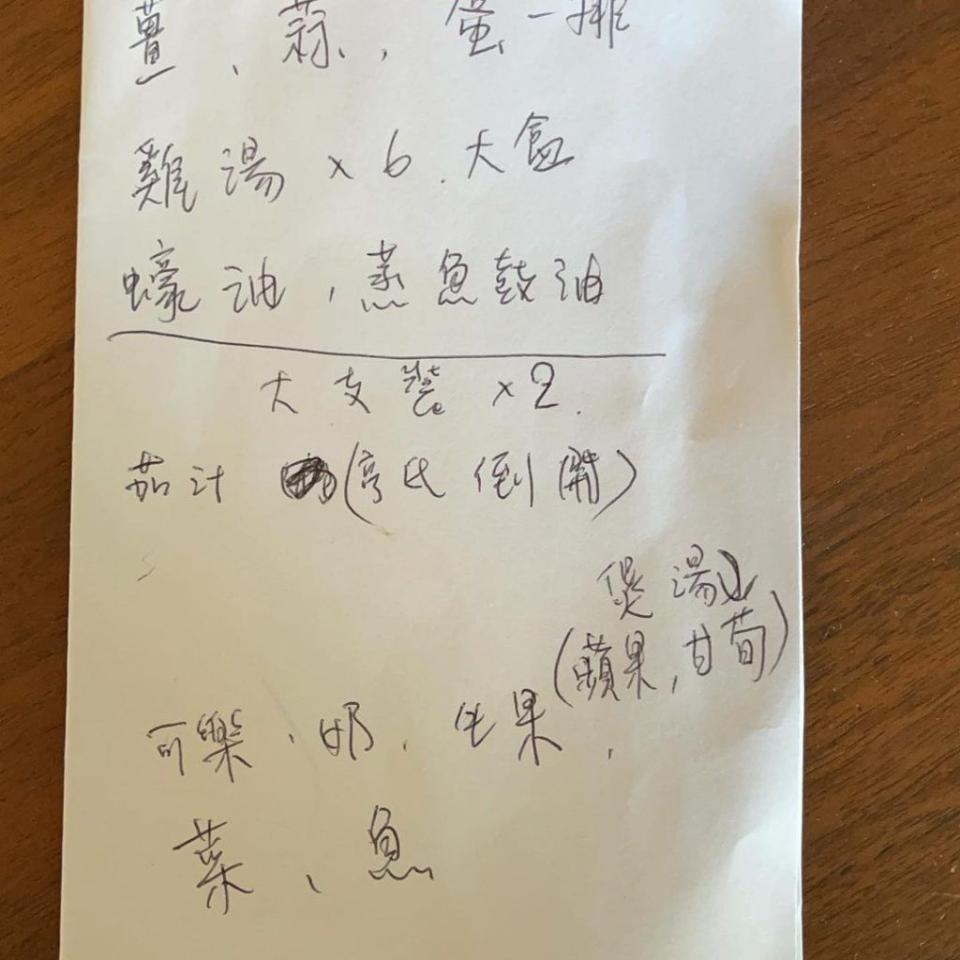 薑、蒜，蛋一排
雞湯 x 6 . 大盒
蠔油，蒸魚鼓油
大支裝 x 2.
茄汁 (亨氏倒開)
煲湯
(蘋果，甘荀)
可樂、奶、生果，
菜、魚